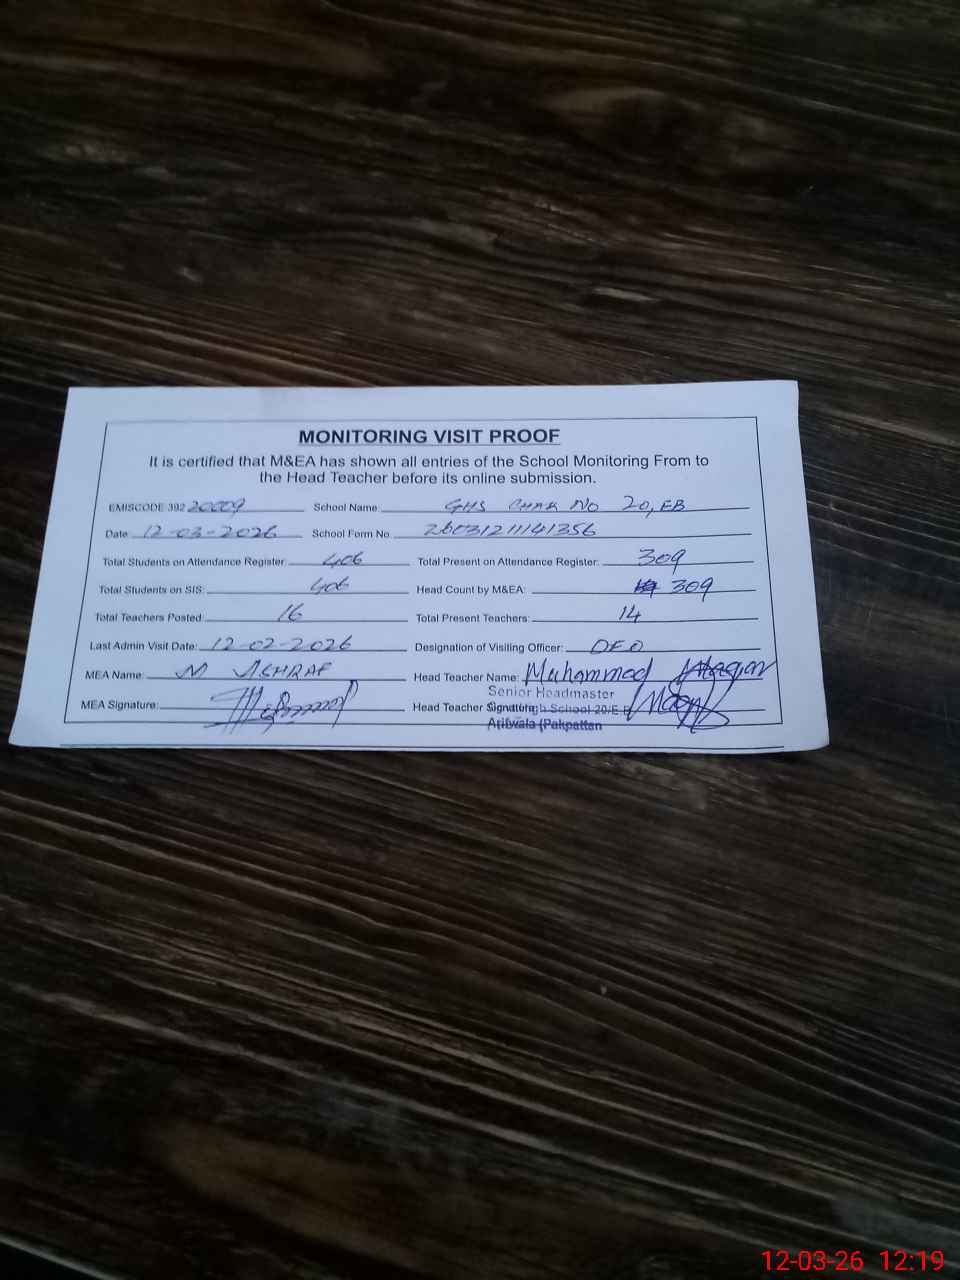 MONITORING VISIT PROOF
It is certified that M&EA has shown all entries of the School Monitoring From to
the Head Teacher before its online submission.
EMISCODE 392 20009 School Name GHS CHAK NO 20, EB
Date 12-03-2026 School Form No 26031211141356
Total Students on Attendance Register: 406 Total Present on Attendance Register: 309
Total Students on SIS: 406 Head Count by M&EA: 309
Total Teachers Posted: 16 Total Present Teachers: 14
Last Admin Visit Date: 12-02-2026 Designation of Visiting Officer: DEO
MEA Name: M ASHRAF Head Teacher Name: Muhammad
Senior Headmaster
MEA Signature: Head Teacher Signature: High School 20/E.B
Arifwala (Pakpattan
12-03-26 12:19